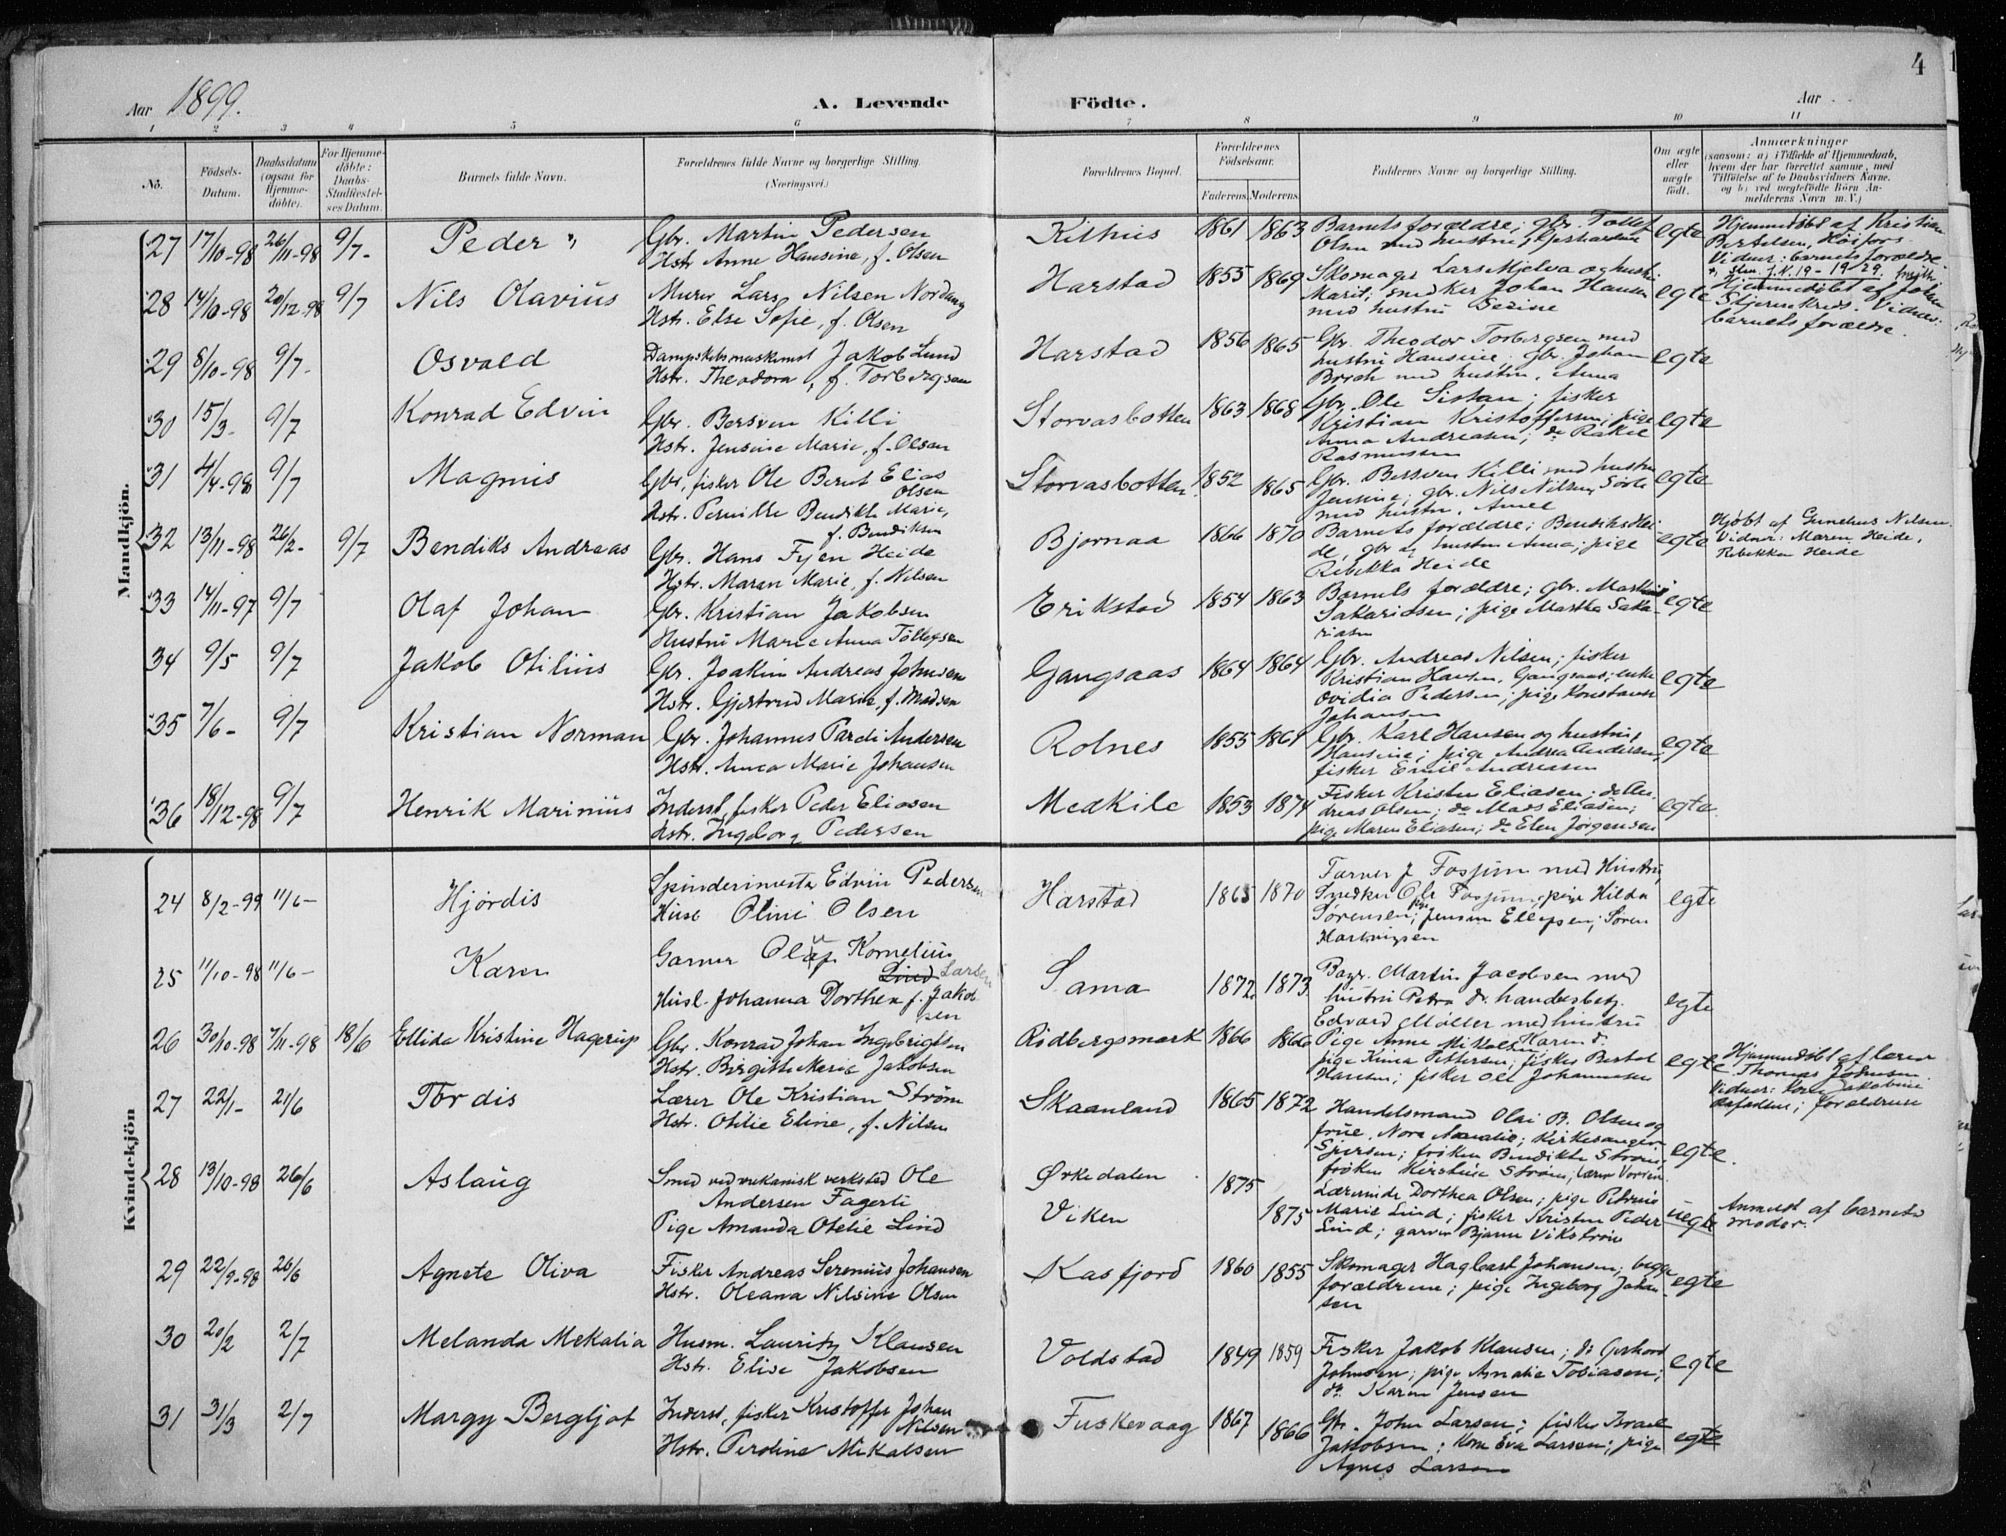 4
Aar 1899.
A. Levende
Födte.
Aar
1 2 3 4 5 6 7 8 9 10 11
No.
Födsels-
Datum.
Daabsdatum
(ogsaa for
Hjemme-
døbte).
For Hjemme-
döbte:
Daabs-
Stadfæstel-
ses Datum.
Barnets fulde Navn.
Forældrenes fulde Navne og borgerlige Stilling.
(Næringsvei.)
Forældrenes Bopæl.
Forældrenes
Födselsaar.
Faderens. Moderens.
Faddernes Navne og borgerlige Stilling.
Om ægte
eller
uægte
födt.
Anmærkninger
(saasom: a) i Tilfælde af Hjemmedaab,
hvem der har forrettet samme, med
Tilföielse af to Daabsvidners Navne,
og b) ved uægtefödte Börn An-
melderens Navn m. V.)
Mandkjön.
27 17/10-98 26/11-98 9/7- Peder
Gbr. Martin Pedersen
Hstr. Anne Hansine, f. Olsen
Kilhus 1861 1863
Barnets forældre; gbr. Tollef
Olsen med hustru Gerhardine
egte
Hjemmedøbt af Kristian
Bertelsen,
Vidner: barnets forældre.
28 14/10-98 20/12-98 9/7 Nils Olavius
Murer Lars Nilsen Nordang
Hstr. Else Sofie, f. Olsen
Harstad 1855 1869
Skomager Lars Mjelva og hustr.
Marit; snedker Johan Hansen
med hustru
egte
Hjemmedøbt af
Vidner:
barnets forældre.
29 8/10-98 9/7- Osvald
Jakob Lund
Hstr. Theodora, f. Torbergsen
Harstad 1856 1865
Gbr. Theodor Torbergsen med
hustru Hansine; gbr. Johan
med hustru, Anna
egte
30 15/3- 9/7 Konrad Edvin
Gbr. Bersven Killi
Hstr. Jensine Marie, f. Olsen
Storvasbotten 1863 1868
Gbr. Ole Sistan; fisker
Kristian Kristoffersen; pige
Anna Andreasen; do Rakel
Rasmussen
egte
31 4/4-98 9/7 Magnus
Gbr, fisker Ole Bernt Elias
Olsen
Hstr. Pernille Bendikte Marie,
f. Bendiksen
Storvasbotten 1852 1865
Gbr. Bersven Killi med hustru
Jensine; gbr. Nils Nilsen
med hustru,
egte
32 13/11-98 26/2- 9/7 Bendiks Andreas
Gbr. Hans Fyen Heide
Hstr. Maren Marie, f. Nilsen
Bjornaa 1866 1870
Barnets forældre; Bendiks Hei-
de, gbr og hustru Anna; pige
Rebekka Heide
egte
Hjdbt af Nilsen.
Vidner: Maren Heide,
Rebekka Heide
33 14/11-97 9/7 Olaf Johan
Gbr. Kristian Jakobsen
Hustru Marie Anna Tollefsen
Erikstad 1854 1863
Barnets forældre; gbr. Martinus
Sakariasen; pige Martha Saka-
riasen
egte
34 9/5 9/7 Jakob Otilius
Gbr. Joakim Andreas Johnsen
Hstr. Gjertrud Marie, f. Madsen
Gangsaas 1864 1864
Gbr. Andreas Nilsen; fisker
Kristian Hansen, Gangsaas; enke
Ovidia Pedersen; pige Konstanse
Johansen
egte
35 7/6- 9/7 Kristian Norman
Gbr. Johannes Pardi Andersen
Hstr. Anna Marie Johansen
Rolnes 1855 1861
Gbr. Karl Hansen og hustru
Hansine; pige Andrea Andersen,
fisker Emil Andreasen
egte
36 18/12-98 9/7 Henrik Marinius
Inderst, fisker Peder Eliasen
Hstr. Ingeborg Pedersen
Medkile 1853 1874
Fisker Kristen Eliasen; do An-
dreas Olsen; do Mads Eliasen;
pige Maren Eliasen; do Elen Jørgensen
egte
Kvindekjön
24 8/2-99 11/6- Hjördis
Spinderimester Edvin Pedersen
Hust Oline Olsen
Harstad 1865 1870
Farver J. Fosjum med Hustru,
Snedker Ole Fosjum, pige Hilda
Sørensen; pige Jensen Ellefsen; Søren
Hartvigsen
egte
25 11/10-98 11/6- Karen
Garver Olaf Kornelius
Lind Larsen
Hust. Johanna Dorthea f. Jakob-
sen
Sama 1872 1873
Martin Jacobsen med
hustru Petra do handelsbetj.
Edvard Møller med hustru
Karen d.
egte
26 30/10-98 7/11-98 18/6 Ellida Kristine Hagerup
Gbr. Konrad Johan Ingebrigtsen
Hstr. Birgitte Marie Jakobsen
Rødbergsmark 1866 1866
Pige Anne Mikalsen
pige Pettersen; fisker Bertel
Hansen; fisker Ole Johannesen
egte
Hjemmedøbt af lærer
Thomas Johnsen
Vidner:
forældrene
27 22/1- 21/6 Tordis
Lærer Ole Kristian Strøm
Hstr. Otilie Eline, f. Nilsen
Skaanland 1865 1872
Handelsmand Olai B. Olsen og
frue, Nora Amalie; kirkesanger
Sjursen; frøken Bendikte Strøm;
frøken Kirstine Strøm; lærer
egte.
28 13/10-98 26/6 Aslaug
Smed ved mekanisk verksted Ole
Andersen Fagerli
Pige Amanda Otelie Lind
Ørkedalen
Viken
1875
1875
Dorthea Olsen; pige Petrine
Marie Lind; fisker Kristen Peder
Lind; garver Bjarne Vikstrøm
uegte
Anmeldt af barnets
moder.
29 22/9-98 26/6 Agnete Oliva
Fisker Andreas Serenius Johansen
Hstr. Oleana Nilsine Olsen
Kasfjord 1860 1855
Skomager Hagbart Johansen; begge
forældrene; pige Ingeborg Johan-
sen
egte
30 20/2 2/7 Melanda Mekalia
Husm. Lauritz Klausen
Hstr. Elise Jakobsen
Voldstad 1849 1859
Fisker Jakob Klausen; do Gerhard
Johnsen; pige Amalie Tobiasen;
do. Karen Jensen
egte
31 31/3 2/7 Margy Bergljot
Inderst, fisker Kristoffer Johan
Nilsen
Hstr. Peroline Mikalsen
Fuskevaag 1867 1866
Gbr. John Larsen; fisker Israel
Jakobsen; Kone Eva Larsen; pige
Agnes Larsen
egte